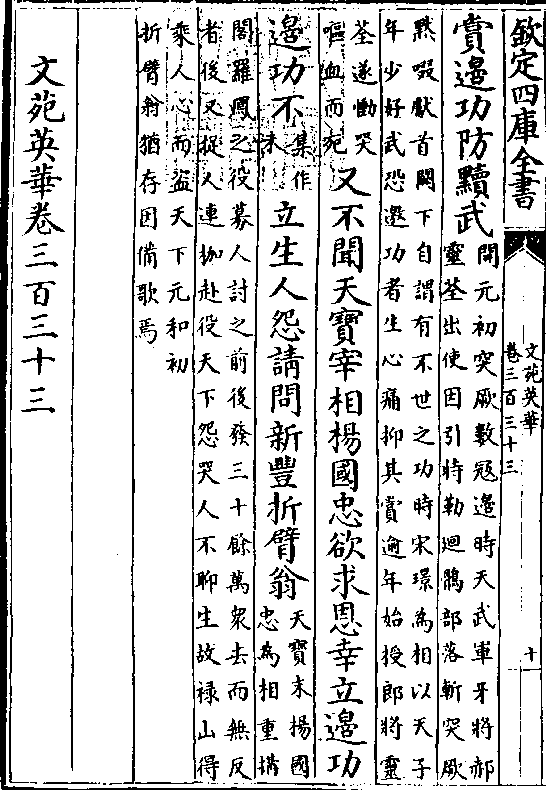 欽定四庫全書
文苑英華
卷三百三十三
十
賞邊功防黷武
開元初突厥數冦邊時天武軍牙將郝
靈荃出使因引特勒廻鶻部落斬突厥
黙啜獻首闕下自謂有不世之功時宋璟為相以天子
年少好武恐邀功者生心痛抑其賞逾年始授郎將靈
荃遂慟哭
嘔血而死
又不聞天寶宰相楊國忠欲求恩幸立邊功
邊功不
集作
未
立生人怨請問新豐折臂翁
天寶末楊國
忠為相重搆
閣羅鳳之役募人討之前後發三十餘萬衆去而無反
者後又捉人連枷赴役天下怨哭人不聊生故禄山得
乘人心而盜天下元和初
折臂翁猶存因備歌焉
文苑英華卷三百三十三